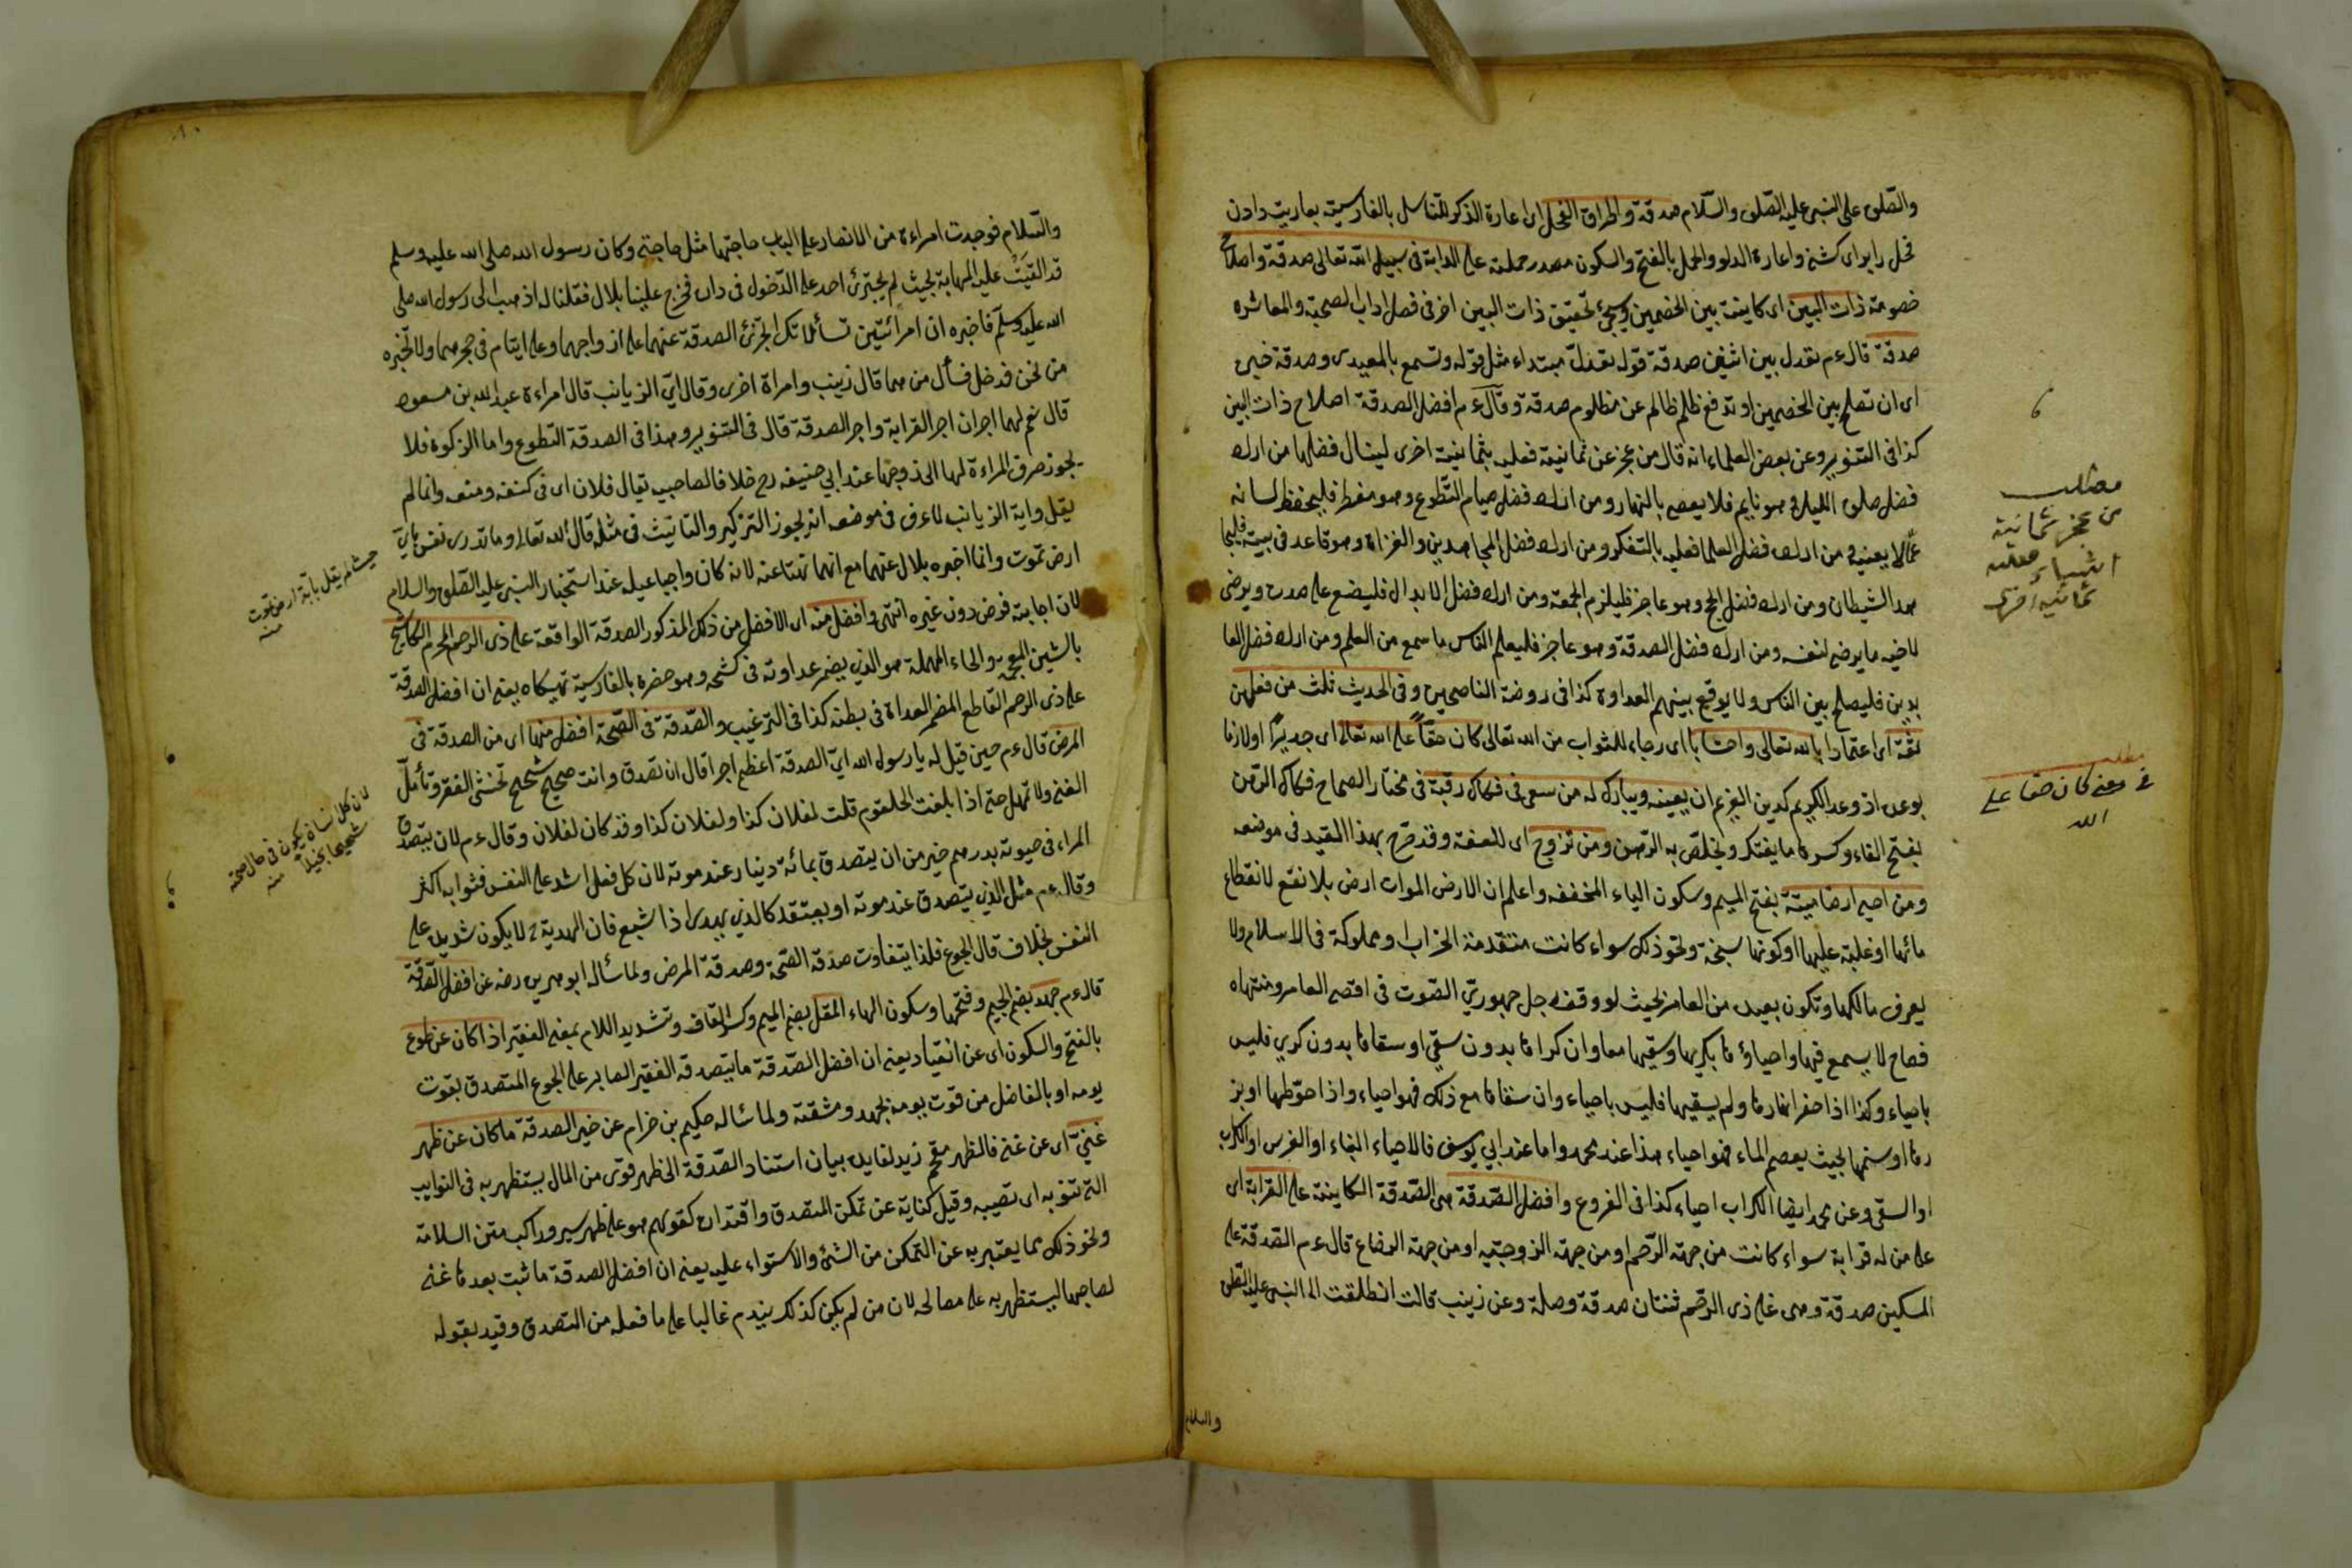 والصلوة على النبي عليه الصلوة والسلام صدقة واطراق الفحل اى اعارة الذكر للتناسل بالفارسية بعاريت دادن
فحل را براى كشنى واعارة الدلو والحمل بالفتح والسكون مصدر حملته على الدابة فى سبيل الله تعالى صدقة واصلاح
خصومة ذات البين اى كاينة بين الخصمين ويجئ تحقيق ذات البين اخر فى فصل اداب الصحبة والمعاشره
صدقة قال ءم تعدل بين اثنين صدقة قوله تعدل مبتداء مثل قوله وتسمع بالمعيدى وصدقة خبره
اى ان تصلح بين الخصمين او تدفع ظلم ظالم عن مظلوم صدقة وقال ءم افضل الصدقة اصلاح ذات البين
كذا فى التنوير وعن بعض العلماء انه قال من عجز عن ثمانية فعليه بثمانية اخرى لينال فضلها من اراد
فضل صلوة الليل وهو نايم فلا يعصى بالنهار ومن اراد فضل صيام التطوع وهو مفطر فليحفظ لسانه
عما لا يعنيه ومن اراد فضل العلما فعليه بالتفكر ومن اراد فضل المجاهدين والغزاة وهو قاعد فى بيته فليجا
هد الشيطان ومن اراد فضل الحج وهو عاجز فليلزم الجمعة ومن اراد فضل الابدال فليضع على صدره ويرضى
لاخيه ما يرضى لنفسه ومن اراد فضل الصدقة وهو عاجز فليعلم الناس ما سمع من العلم ومن اراد فضل العا
بدين فليصلح بين الناس ولا يوقع بينهم العداوة كذا فى روضة الناصحين وفى الحديث ثلث من فعلهن
ثقة اى اعتمادا بالله تعالى واحتسابا اى رجاء للثواب من الله تعالى كان حقا على الله تعالى اى جديرا او لازما
بوعده اذ وعد الكريم كدين الغريم ان يعينه ويبارك له من سعى فى فكاك رقبة فى مختار الصحاح فكاك الرهن
بفتح الفاء وكسرها ما يفتك ويخلص به الرهن ومن تزوج اى للعفة وقد صرح بهذا القيد فى موضعه
ومن احيى ارضا ميتة بفتح الميم وسكون الياء المخففه واعلم ان الارض الموات ارض بلا نفع لانقطاع
مائها او غلبة عليها او كونها سبخة ونحو ذلك سواء كانت متقدمة الخراب او مملوكة فى الاسلام ولا
يعرف مالكها وتكون بعيدة من العامر بحيث لو وقف رجل جهورى الصوت فى اقصى العامر ومنتهاه
فصاح لا يسمع فيها واحياؤها بكريها وسقيها معا وان كراها بدون سقى او سقاها بدون كرى فليس
باحياء وكذا اذا حفر انهارها ولم يسقيها فليس باحياء وان سقاها مع ذلك فهو احياء واذا حوطها او بز
رها او سنمها بحيث يعصم الماء فهو احياء هذا عند محمد واما عند ابى يوسف فالاحياء البناء او الغرس او الكراب
او السقى وعن محمد ايضا الكراب احياء كذا فى الفروع وافضل الصدقة هى الصدقة الكاينة على القرابة اى
على من له قرابة سواء كانت من جهة الرحم او من جهة الزوجية او من جهة الرضاع قال ءم الصدقة على
المسكين صدقة وهى على ذى الرحم ثنتان صدقة وصلة وعن زينب قالت انطلقت الى النبى عليه الصلوة
والسلام
مطلب
من عجز ثمانية
اشياء فعليه
ثمانية اخرى
مطلب
فى معنى كان حقا على
الله
والسلام فوجدت امراءة من الانصار على الباب حاجتها مثل حاجتى وكان رسول الله صلى الله عليه وسلم
قد القيت عليه المهابة بحيث لم يجترئ احد على الدخول فى داره فخرج علينا بلال فقلنا له اذهب الى رسول الله صلى
الله عليه وسلم فاخبره ان امرائتين تسألانك اتجزئ الصدقة عنهما على ازواجهما وعلى ايتام فى حجرهما ولا تخبره
من نحن فدخل فسأل من هما قال زينب وامراة اخرى وقال اى الزيانب قال امراءة عبد الله بن مسعود
قال نعم لهما اجران اجر القرابة واجر الصدقة قال فى التنوير وهذا فى الصدقة التطوع واما الزكوة فلا
يجوز صرف المراءة لها الى زوجها عند ابي حنيفه رح خلافا لصاحبيه يقال فلان اى فى كنفه ومنعه وانما لم
يقل واية الزيانب لما عرف فى موضعه انه يجوز التزكير والتانيث فى مثله قال الله تعالى وما تدرى نفس باى
ارض تموت وانما اخبره بلال عنهما مع انهما نهتا عنه لانه كان واجبا عليه عند استخبار النبى عليه الصلوة والسلام
لان اجابته فرض دون غيره انتهى وافضل منه اى الافضل من ذلك المذكور الصدقة الواقعة على ذى الرحم المحرم الكاشح
بالشين المعجمة والحاء المهملة هو الذى يضمر عداوته فى كشحه وهو خصره بالفارسية تهيكاه يعنى ان افضل الصدقة
على ذى الرحم القاطع المضمر العداوة فى بطنه كذا فى الترغيب والصدقة فى الصحة افضل منها اى من الصدقة فى
المرض قال ءم حين قيل له يا رسول الله اى الصدقة اعظم اجرا قال ان تصدق وانت صحيح شحيح تخشى الفقر وتأمل
الغنى ولا تمهل حتى اذا بلغت الحلقوم قلت لفلان كذا ولفلان كذا وقد كان لفلان وقال ءم لان يتصدق
المراء فى حيوته بدرهم خير من ان يتصدق بمائة دينار عند موته لان كل فعل اشد على النفس فثوابه اكثر
وقال ءم مثل الذى يتصدق عند موته او يعتق كالذى يهدى اذا شبع فان الهدية لا يكون شديدة على
النفس بخلاف قال الجوع فلذا يتفاوت صدقة الصحة وصدقة المرض ولما سأله ابو هريره رضه عن افضل الصدقة
قال ءم جهد بضم الجيم وفتحها وسكون الهاء المقل بضم الميم وكسر القاف وتشديد اللام بمعنى الفقير اذا كان عن طوع
بالفتح والسكون اى عن انقياد يعنى ان افضل الصدقة ما يتصدقه الفقير الصابر على الجوع المتصدق بقوت
يومه او بالفاضل من قوت يومه بجهد ومشقة ولما سأله حكيم بن خزام عن خير الصدقة ما كان عن ظهر
غنى اى عن غنى فالظهر مقحم زيد لفايدة بيان استناد الصدقة الى ظهر قوى من المال يستظهر به فى النوايب
التى تنوبه اى تصيبه وقيل كناية عن تمكن المتصدق واقتداره كقولهم هو على ظهر سير وراكب متن السلامة
ونحو ذلك مما يعتبر به عن التمكن من الشئ والاستواء عليه يعنى ان افضل الصدقة ما ثبت بعدها غنى
لصاحبها ليستظهر به على مصالحه لان من لم يكن كذلك يندم غالبا على ما فعله من التصدق وقيد بقوله
حيث لم يقل باية ارض تموت
منه
لان كل انسان يكون فى حال صحته
شحيحا بخيلا منه